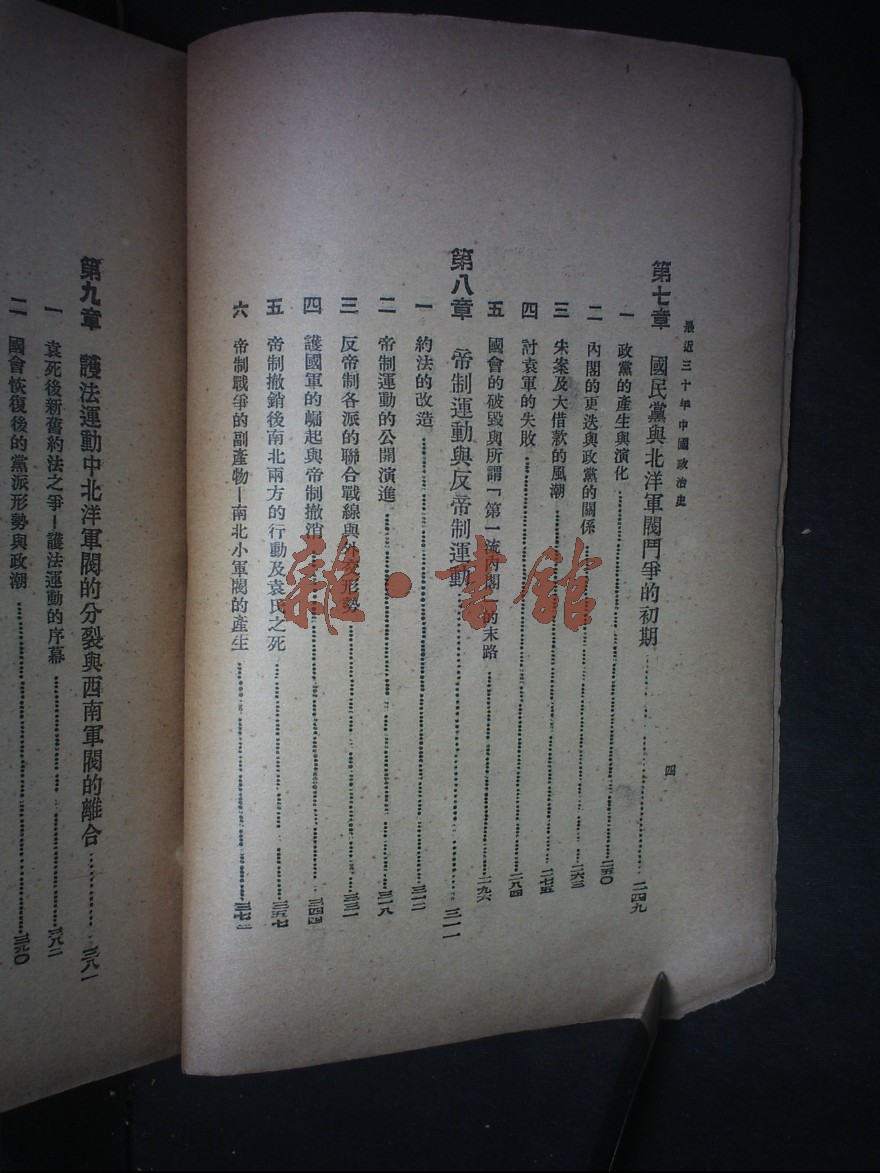 最近三十年中國政治史
四
第七章 國民黨與北洋軍閥鬥爭的初期……二四九
一 政黨的產生與演化……二五〇
二 內閣的更迭與政黨的關係……二六三
三 宋案及大借款的風潮……二七五
四 討袁軍的失敗……二八四
五 國會的破毀與所謂「第一流內閣」的末路……二九六
第八章 帝制運動與反帝制運動……三一一
一 約法的改造……三一二
二 帝制運動的公開演進……三一八
三 反帝制各派的聯合戰線與外交形勢……三三一
四 護國軍的崛起與帝制撤消……三四四
五 帝制撤銷後南北兩方的行動及袁氏之死……三五七
六 帝制戰爭的副產物—南北小軍閥的產生……三七二
第九章 護法運動中北洋軍閥的分裂與西南軍閥的離合……三八一
一 袁死後新舊約法之爭—護法運動的序幕……三八二
二 國會恢復後的黨派形勢與政潮……三九〇
雜·書館